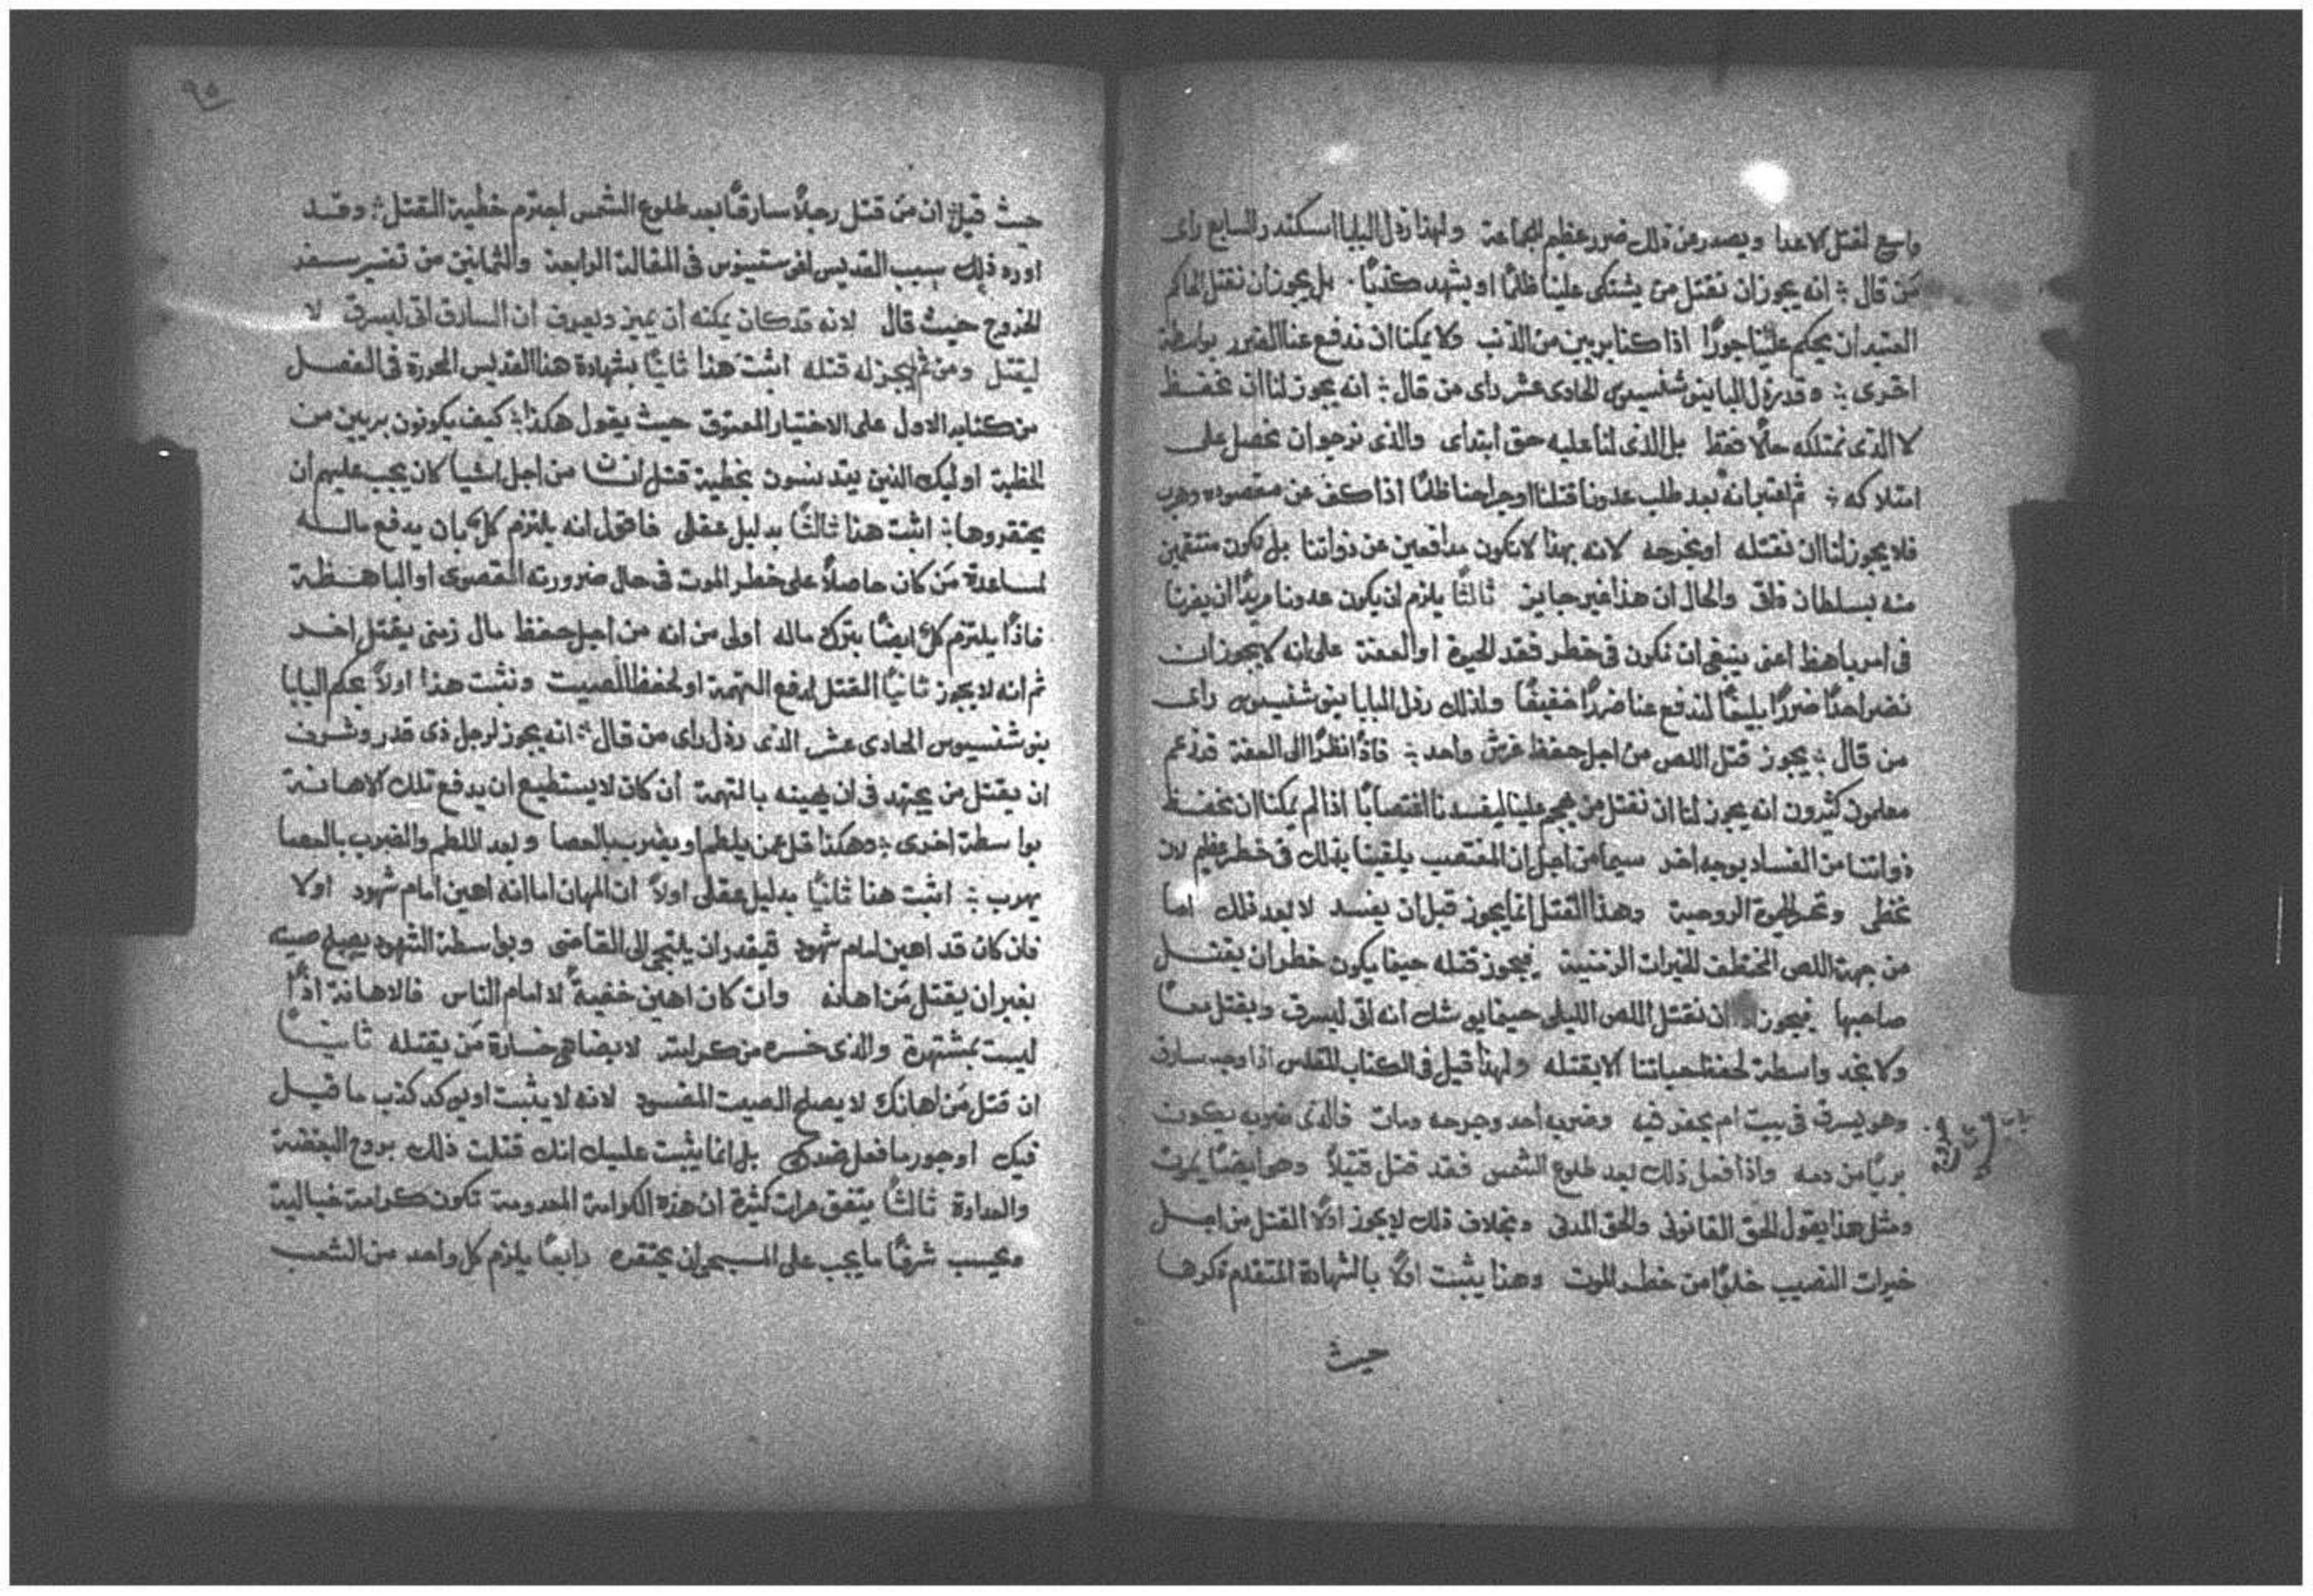 واسع لقتل الاعدا ويصدر عن ذلك ضرر عظيم للجماعة ولهذا رذل البابا اسكندر السابع راى
مَن قال ÷ انه يجوز ان نقتل من يشتكى علينا ظلمًا او يشهد كذبًا ٠ بل يجوز ان نقتل الحاكم
العتيد ان يحكم علينا جورًا اذا كنا بريين من الذنب ولا يمكنا ان ندفع عنا الضرر بواسطة
اخرى ÷ وقد رذل البابا ينوشنسيوس الحادى عشر راى من قال ÷ انه يجوز لنا ان نحفظ
لا الذى نمتلكه حالًا فقط بل الذى لنا عليه حق ابتداى والذى نرجو ان نحصل على
امتلاكه ÷ ثم اعتبر انه بعد طلب عدونا قتلنا او جراحنا ظلمًا اذا كف عن مقصوده وهرب
فلا يجوز لنا ان نقتله او نجرحه لانه بهذا لا نكون مدافعين عن ذواتنا بل نكون منتقمين
منه بسلطان ذاتى والحال ان هذا غير جايز ثالثًا يلزم ان يكون عدونا مريدًا ان يضرنا
فى امر باهظ اعنى ينبغى ان نكون فى خطر فقد الحيوة او العفة على انه لا يجوز ان
نضر احدًا ضررًا بليغًا لندفع عنا ضررًا خفيفًا ولذلك رذل البابا ينوشنسيوس راى
من قال ÷ يجوز قتل اللص من اجل حفظ غرش واحد ÷ فاذًا نظرًا الى العفة قد زعم
معلمون كثيرون انه يجوز لنا ان نقتل من هجم علينا ليفسدنا اغتصابًا اذا لم يمكنا ان نحفظ
ذواتنا من الفساد بوجه اخر سيما من اجل ان المغتصب يلقينا بذلك فى خطر عظيم لان
نخطى ونخسر الحيوة الروحية وهذا القتل انما يجوز قبل ان يفسد لا بعد ذلك اما
من جهة اللص المختطف للخيرات الزمنية فيجوز قتله حينما يكون خطر ان يقتل
صاحبها فيجوز ان نقتل اللص الليلى حينما يوشك انه اتى ليسرق ويقتل معًا
ولا نجد واسطة لحفظ حياتنا الا بقتله ولهذا قيل فى الكتاب المقدس اذا وجد سارق
وهو يسرق فى بيت ام يحفر فيه وضربه احد وجرحه ومات فالذى ضربه يكون
بريًا من دمه واذا فعل ذلك بعد طلوع الشمس فقد قتل قتيلًا وهو ايضًا يموت
ومثل هذا يقول الحق القانونى والحق المدنى وبخلاف ذلك لا يجوز اولًا القتل من اجل
خيرات النصيب خلوًا من خطر الموت وهذا يثبت اولًا بالشهادة المتقدم ذكرها
حيث
٩٥
حيث قيل ÷ ان مَن قتل رجلًا سارقًا بعد طلوع الشمس اجترم خطية القتل ÷ وقد
اورد ذلك سبب القديس اغوستينوس فى المقالة الرابعة والثمانين من تفسير سفر
الخروج حيث قال لانه قد كان يمكنه ان يميز ويعرف ان السارق اتى ليسرق لا
ليقتل ومن ثم لم يجز له قتله اثبت هذا ثانيًا بشهادة هذا القديس المحررة فى الفصل
من كتابه الاول على الاختيار المعتوق حيث يقول هكذا ÷ كيف يكونون بريين من
الخطية اوليك الذين يتدنسون بخطية قتل انسان من اجل اشيا كان يجب عليهم ان
يحتقروها ÷ اثبت هذا ثالثًا بدليل عقلى فاقول انه يلتزم كل بان يدفع ماله
لمساعدة مَن كان حاصلًا على خطر الموت فى حال ضرورته القصوى او الباهظة
فاذًا يلتزم كل ايضًا بترك ماله اولى من انه من اجل حفظ مال زمنى يقتل اخر
ثم انه لا يجوز ثانيًا القتل لدفع التهمة او لحفظ الصيت ونثبت هذا اولًا بحكم البابا
ينوشنسيوس الحادى عشر الذى رذل راى من قال ÷ انه يجوز لرجل ذى قدر وشرف
ان يقتل من يجتهد فى ان يهينه بالتهمة ان كان لا يستطيع ان يدفع تلك الاهانة
بواسطة اخرى ÷ وهكذا قل عمن يلطم او يضرب بالعصا وبعد اللطم والضرب بالعصا
يهرب ÷ اثبت هذا ثانيًا بدليل عقلى اولًا ان المهان اما انه اهين امام شهود اولا
فان كان قد اهين امام شهود فيقدر ان يلتجى الى القاضى وبواسطة الشهود يصلح صيته
بغير ان يقتل مَن اهانه وان كان اهين خفيةً لا امام الناس فالاهانة اذًا
ليست بمشتهرة والذى خسره من كرامته لا يضاهى خسارة مَن يقتله ثانيًا
ان قتل مَن اهانك لا يصلح الصيت المضرور لانه لا يثبت او يوكد كذب ما قيل
فيك او جور ما فعل ضدك بل انما يثبت عليك انك قتلت ذلك بروح البغضة
والعداوة ثالثًا يتفق مرات كثيرة ان هذه الكرامة المعدومة تكون كرامة خيالية
ويحسب شرفًا ما يجب على المسيحى ان يحتقره رابعًا يلزم كل واحد من الشعب